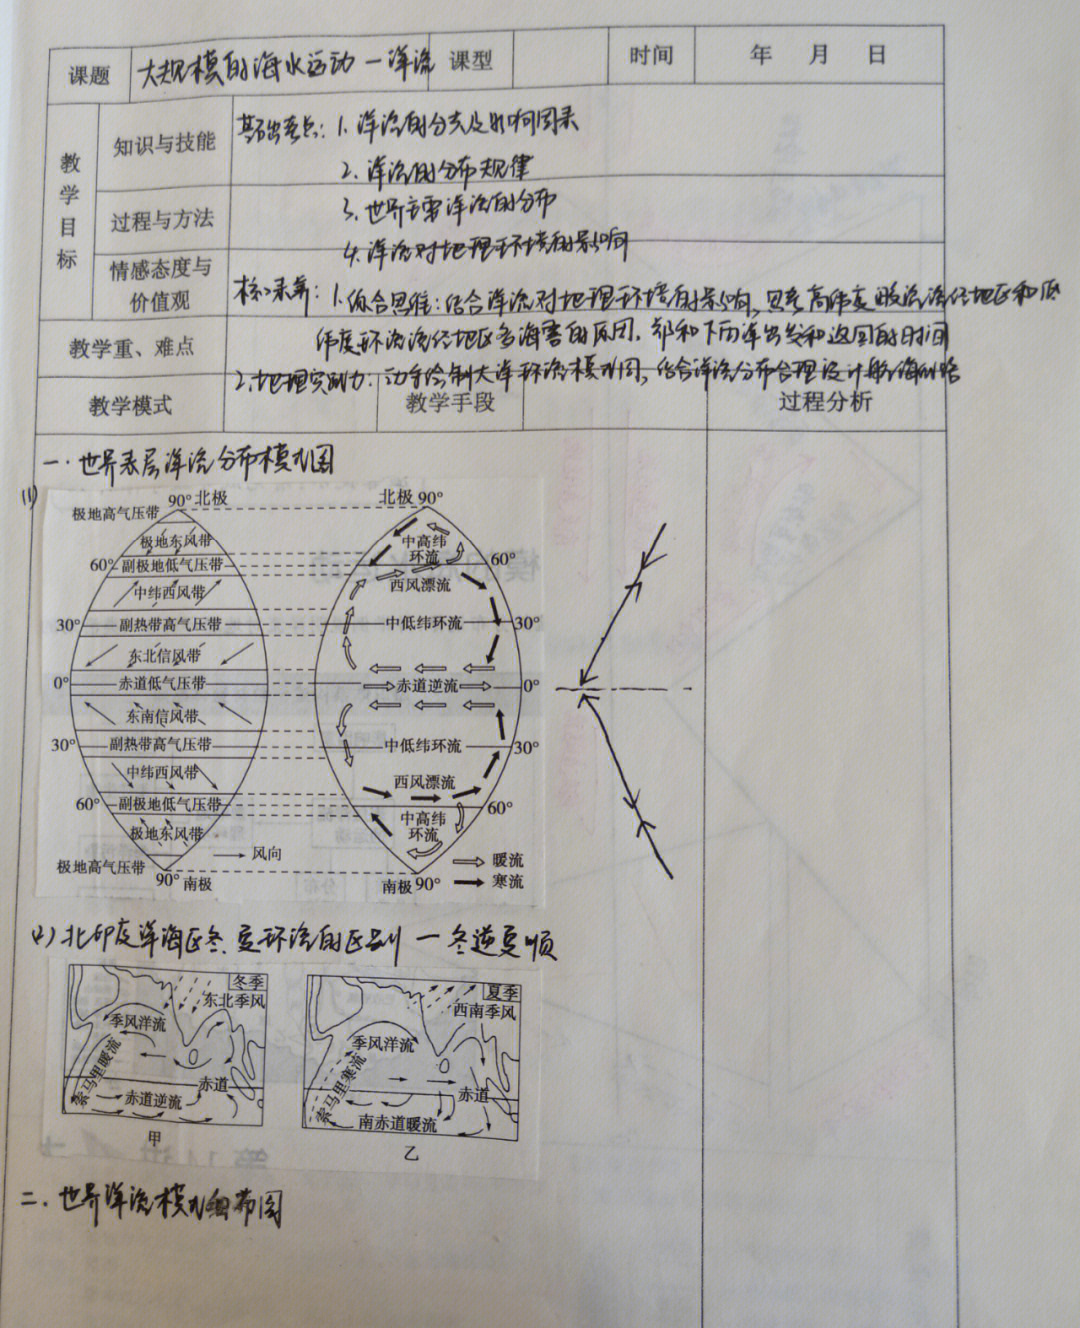 课题 大规模的海水运动—洋流 课型 时间 年 月 日
教学目标
知识与技能
基础考点：1.洋流的分类及影响因素
2.洋流的分布规律
过程与方法
3.世界主要洋流的分布
4.洋流对地理环境的影响
情感态度与价值观
核心素养：1.综合思维：结合洋流对地理环境的影响，思考高纬度暖流流经地区和低
教学重、难点
纬度环流流经地区多海雾的原因，郑和下西洋出发和返回的时间
2.地理实践力：动手绘制大洋环流模式图，结合洋流分布合理设计航海线路
教学模式 教学手段 过程分析
一.世界表层洋流分布模式图
(1)
90° 北极
极地高气压带
极地东风带
60° 副极地低气压带
中纬西风带
30° 副热带高气压带
东北信风带
0° 赤道低气压带
东南信风带
30° 副热带高气压带
中纬西风带
60° 副极地低气压带
极地东风带
风向
极地高气压带
90° 南极
北极 90°
中高纬
环流
60°
西风漂流
中低纬环流 30°
赤道逆流 0°
中低纬环流 30°
西风漂流
60°
中高纬
环流
暖流
南极 90° 寒流
(2)北印度洋海区冬、夏环流的区别 — 冬逆夏顺
冬季
东北季风
季风洋流
索马里暖流
赤道
赤道逆流
甲
夏季
西南季风
季风洋流
索马里寒流
赤道
南赤道暖流
乙
二.世界洋流模式分布图